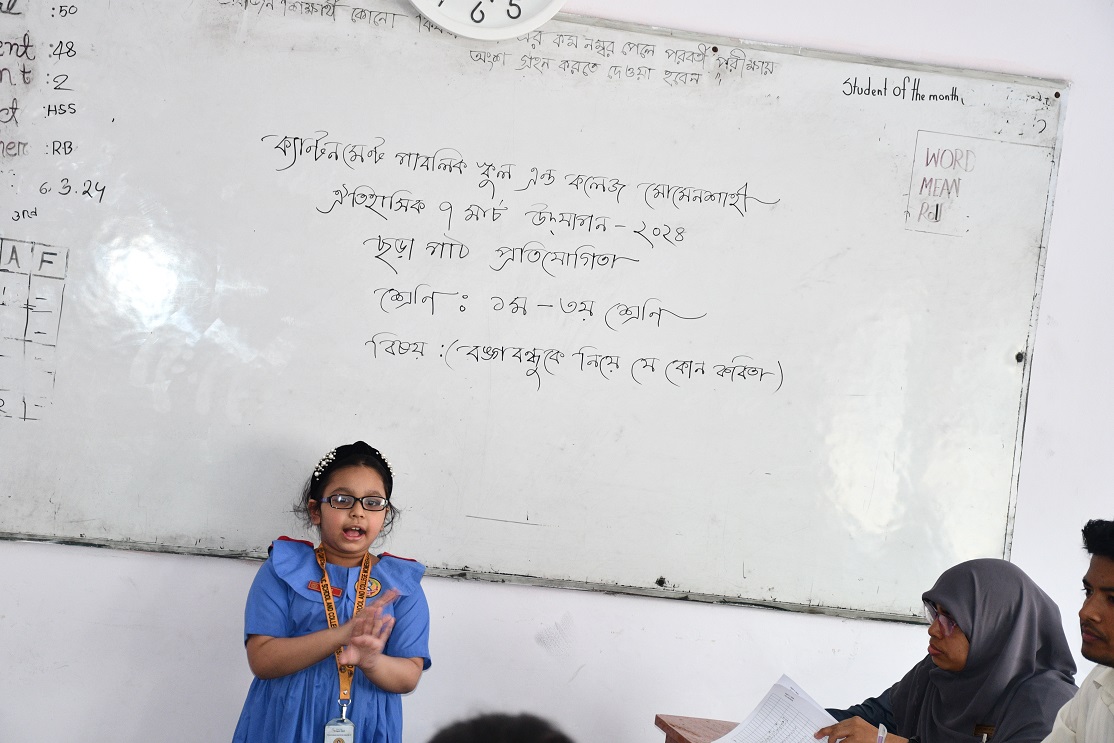 :50
:48
:2
:HSS
:RB
6.3.24
3rd
A F
6 5
শিক্ষার্থী কোনো
এর কম নম্বর পেলে পরবর্তী পরীক্ষায়
অংশ গ্রহন করতে দেওয়া হবেন
Student of the month,
WORD
MEAN
Roll
ক্যান্টনমেন্ট পাবলিক স্কুল এন্ড কলেজ মোমেনশাহী
ঐতিহাসিক ৭ মার্চ উদযাপন - ২০২৪
ছড়া পাঠ প্রতিযোগিতা
শ্রেণি : ১ম - ৩য় শ্রেণি
বিষয় : (বঙ্গবন্ধুকে নিয়ে যে কোন কবিতা)